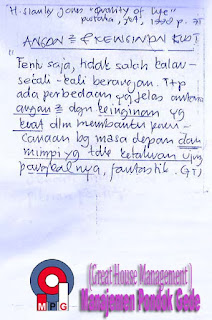 H. Stanley Jones "Quality of Life"
ANGAN ² & KEINGINAN KUAT
"Tentu saja, tidak salah kalau
sekali-kali berangan. Ttp
ada perbedaan yg jelas antara
angan² dgn keinginan yg
kuat dlm membantu
canaan bg masa depan dan
mimpi yg tdk ketahuan ujung
pangkalnya, fantastik.
MPG
(Great House Management)
Manajemen Pondok Gede